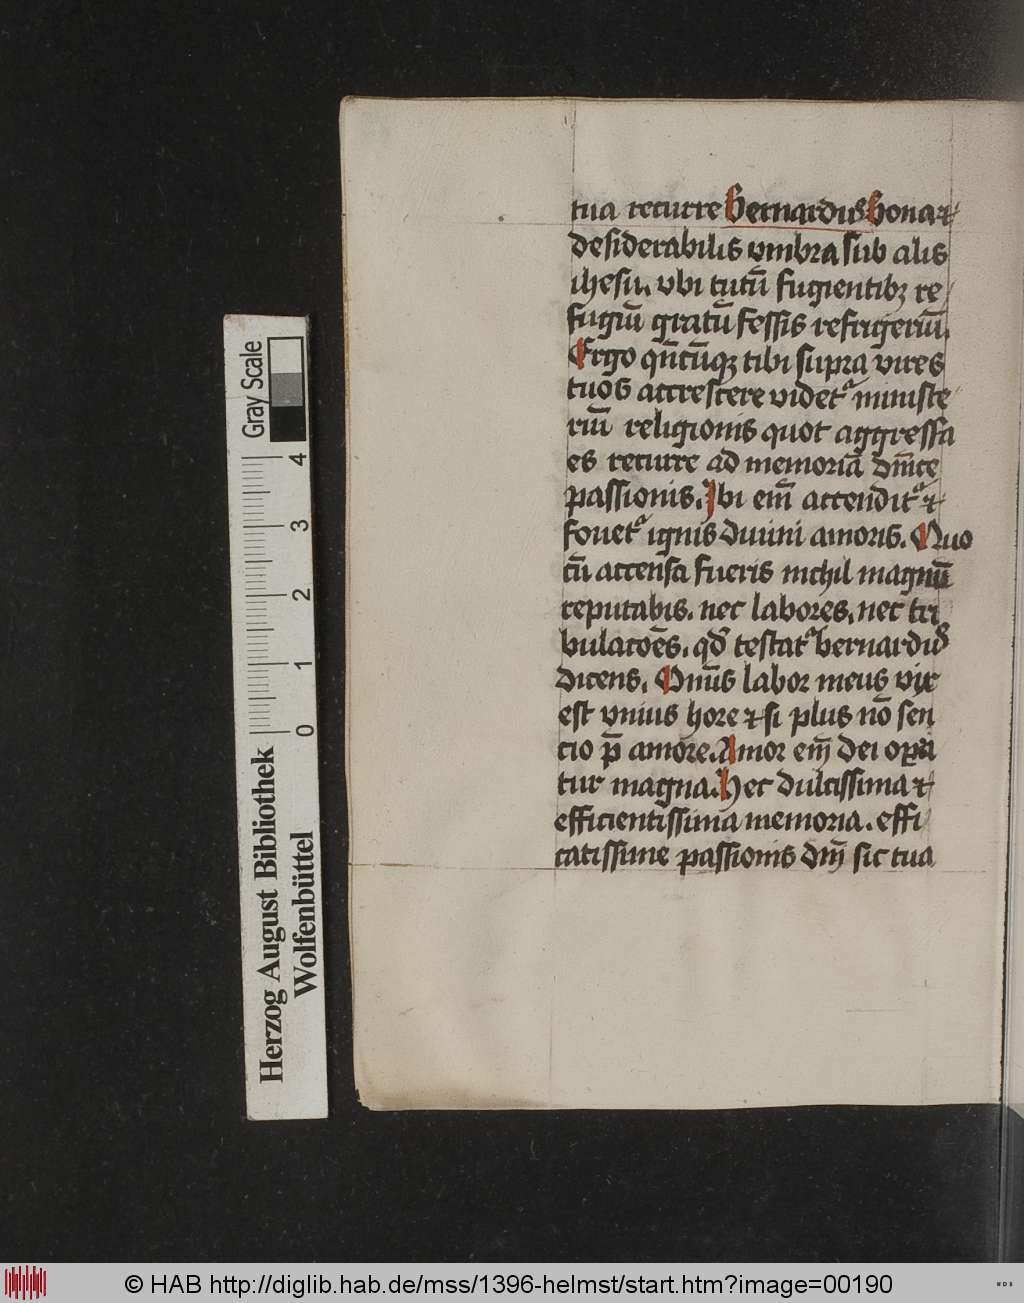 tua recurre Bernardus Bona et
desiderabilis vmbra sub alis
ihesu. vbi tutū fugientibꝫ re
fugiū gratū fessis refrigeriū.
Ergo qn̄cūqꝫ tibi supra vires
tuos accrescere videtᷣ ministe
riū religionis quot aggressa
es recurre ad memoriā dn̄ice
passionis. Ibi em̄ accenditᷣ et
fouetᷣ ignis diuini amoris. Quo
cū accensa fueris nichil magnū
reputabis. nec labores. nec tri
bulacōes. qd̄ testatᷣ bernardꝰ
dicens. Onus labor meus vix
est vnius hore et si plus nō sen
cio p̄ amore. Amor em̄ dei oꝑa
tur magna. Hec dulcissima et
efficientissima memoria. effi
catissime passionis dn̄i sic tua
Gray Scale
4
3
2
1
0
Herzog August Bibliothek
Wolfenbüttel
© HAB http://diglib.hab.de/mss/1396-helmst/start.htm?image=00190
WDB